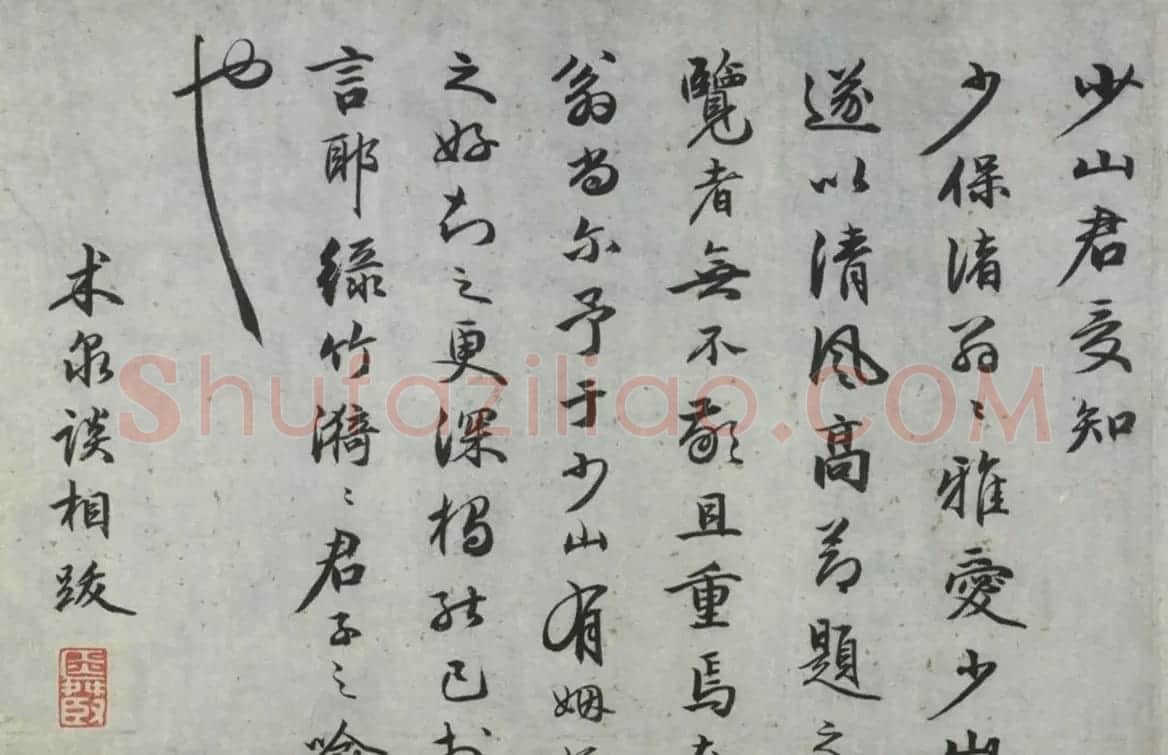 少山君受知
少保渚翁〻雅愛少山
遂以清風高節題之
覽者無不敬且重焉
翁尚尔予于少山有姻
之好知之更深獨能已於
言耶綠竹漪〻君子之喻
也
木泉談相跋
Shufaziliao.COM